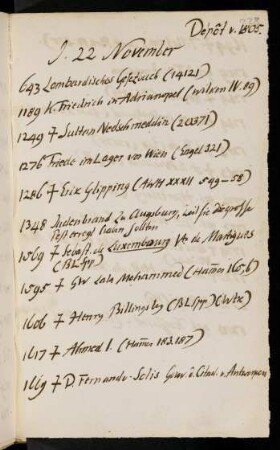 Depôt v. 1805.
J. 22 November
643 Lombardisches Gesezbuch (14121)
1189 K. Friedrich in Adrianopel (Wilken IV. 89)
1249 † Sultan Nedschmeddin (20371)
1276 Friede im Lager vor Wien (Engel 321)
1286 † Erix Glipping (AWH XXXII 549-58)
1348 Judenbrand zu Augsburg, weil sie die grosse
Pest erregt haben sollten
1569 † Sebast. de Luxembourg Vte de Martigues
(BL. fp)
1595 † GW Lala Mohammed (Hamer 165,6)
1606 † Henry Billingsly (BL. fp.) (Wtx)
1617 † Ahmed I. (Hamer 183.187)
1669 † D. Fernando Solis Gouv d. Citad. v. Antwerpen